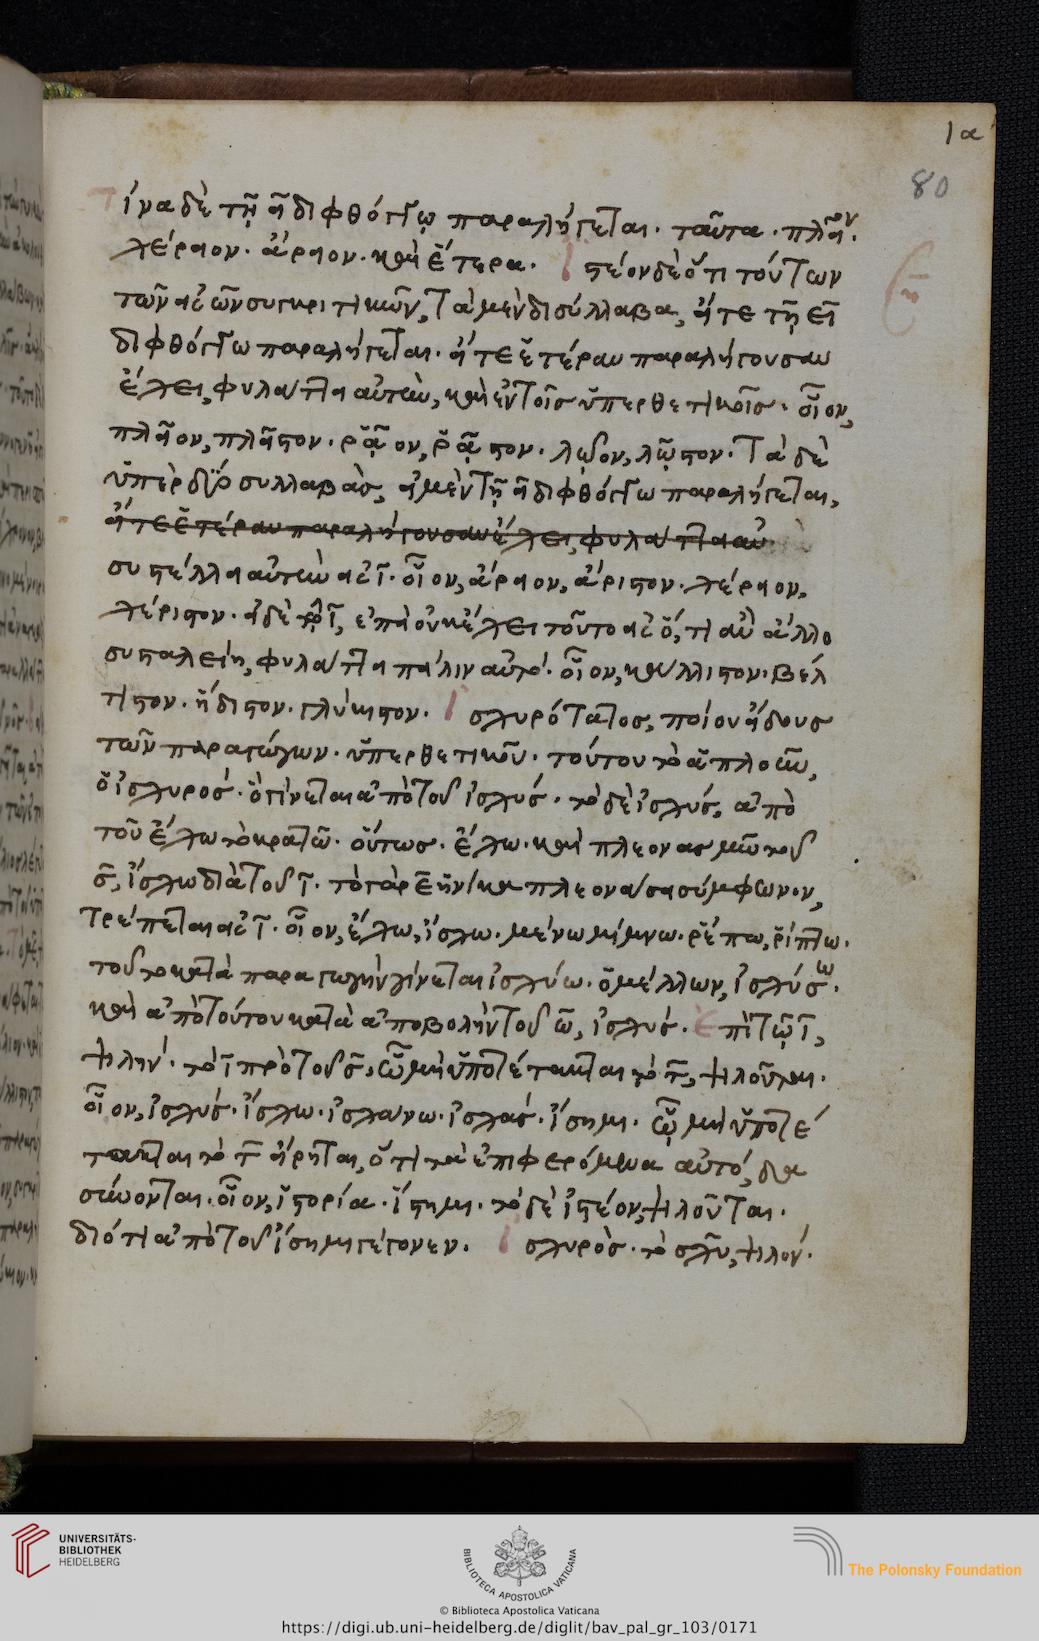 ια
80
Τίνα δὲ τῇ ει διφθόγγῳ παραλήγεται. ταῦτα. πλεῖον.
χέρειον. ἄρειον. καὶ ἕτερα. Ἰστέον δὲ ὅτι τούτων
τῶν εἰς ων συγκριτικῶν, τὰ μὲν δισύλλαβα, εἴτε τῇ ει
διφθόγγω παραλήγεται. εἴτε ἑτέραν παραλήγουσαν
ἔχει, φυλάττει αὐτὴν, καὶ ἐν τοῖς ὑπερθετικοῖς. οἷον,
πλεῖον, πλεῖστον. ῥᾷον, ῥᾷστον. λῷον, λῷστον. Τὰ δὲ
ὑπὲρ δύο συλλαβὰς, εἰ μὲν τῇ ει διφθόγγω παραλήγεται,
εἴτε ἑτέραν παραλήγουσαν ἔχει, φυλάττει αὐ
συστέλλει αὐτὴν εἰς ι. οἷον, ἄρειον, ἄριστον. χέρειον,
χέριστον. εἰ δὲ τῷ ι, ἐπεὶ οὐκ ἔχει τοῦτο εἰς ὅ, τι ἂν ἄλλο
συσταλείη, φυλάττει πάλιν αὐτό. οἷον, κάλλιστον. βέλ
τιστον. ἥδιστον. γλύκιστον. Ἰσχυρότατος, ποίον εἴδους
τῶν παραγώγων. ὑπερθετικοῦ. τούτου τὸ ἁπλοῦν,
ὁ ἰσχυρός. ὃ γίνεται ἀπὸ τοῦ ἰσχύς. τὸ δὲ ἰσχύς, ἀπὸ
τοῦ ἔχω τὸ κρατῶ. οὕτως. ἔχω. καὶ πλεονασμῶ τοῦ
σ, ἴσχω διὰ τοῦ ι. τὸ γὰρ ε ἡνίκα πλεονάσει σύμφωνον,
τρέπεται εἰς ι. οἷον, ἔχω, ἴσχω. μένω μίμνω. ῥέπω, ῥίπτω.
τοῦτο κατὰ παραγωγὴν γίνεται ἰσχύω. ὁ μέλλων, ἰσχύσω.
καὶ ἀπὸ τούτου κατὰ ἀποβολὴν τοῦ ω, ἰσχύς. Ἐπὶ τῷ ι,
ψιλήν. τὸ ι πρὸ τοῦ σ, ᾧ μὴ ὑποτέτακται τὸ τ, ψιλοῦται.
οἷον, ἰσχύς. ἴσχω. ἰσχαίνω. ἰσχάς. ἴσημι. ᾧ μὴ ὑποτέ
τακται τὸ τ εἴρηται, ὅτι τὰ ἐπιφερόμενα αὐτό, δα
σύνονται. οἷον, ἱστορία. ἵστημι. τὸ δὲ ἰστέον, ψιλοῦται.
διότι ἀπὸ τοῦ ἴσημι γέγονεν. Ἰσχυρὸς. τὸ σχυ, ψιλόν.
UNIVERSITÄTS-
BIBLIOTHEK
HEIDELBERG
BIBLIOTECA APOSTOLICA VATICANA
The Polonsky Foundation
© Biblioteca Apostolica Vaticana
https://digi.ub.uni-heidelberg.de/diglit/bav_pal_gr_103/0171